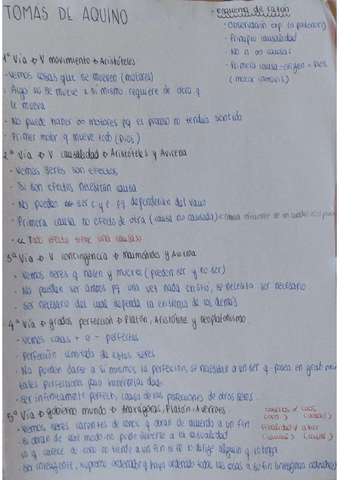 TOMAS DE AQUINO
- esquema de razón
- Observación exp (a posteriori)
- Principio causalidad
- No ∞ causas
- Primera causa = origen = Dios
(motor inmóvil)
1ª Vía → V movimiento → Aristóteles
- Vemos cosas que se mueven (motores)
- Algo no se mueve x si mismo, requiere de otro q
le mueva
- No puede haber ∞ motores pq el proceso no tendría sentido
- Primer motor q mueve todo (Dios)
2ª Vía → V causalidad → Aristóteles y Avicena
- Vemos seres son efectos
- Si son efectos necesitan causa
- No pueden ser c y e pq dependerían del
- Primera causa no efecto de otra (causa no causada)
- << Todo efecto tiene una causa >>
3ª Vía → V contingencia → Maimónides y Avicena
- Vemos seres q nacen y mueren (pueden ser y no ser)
- No pueden ser pq una vez nada existió, se necesita ser necesario
- Ser necesario del cual dependa la existencia de los demás
4ª Vía → grados perfección → Platón, Aristóteles y neoplatonismo
- Vemos cosas + o - perfectas
- Perfección limitada de estos seres
- No pueden darse a sí mismos la perfección, se necesita a un ser q posea en grado
tales perfecciones para
- Ser infinitamente perfecto, causa de las perfecciones de otros seres
5ª Vía → gobierno mundo → Anaxágoras, Platón, Averroes
- Vemos seres carentes de conoc q obran de acuerdo a un fin
- Si obran de este modo no puede deberse a la casualidad
- Lo q carece de conoc no tiende a un fin si no lo dirige alguien q lo tenga
- Ser inteligente, supremo ordenador q haya ordenado todas las cosas a su fin